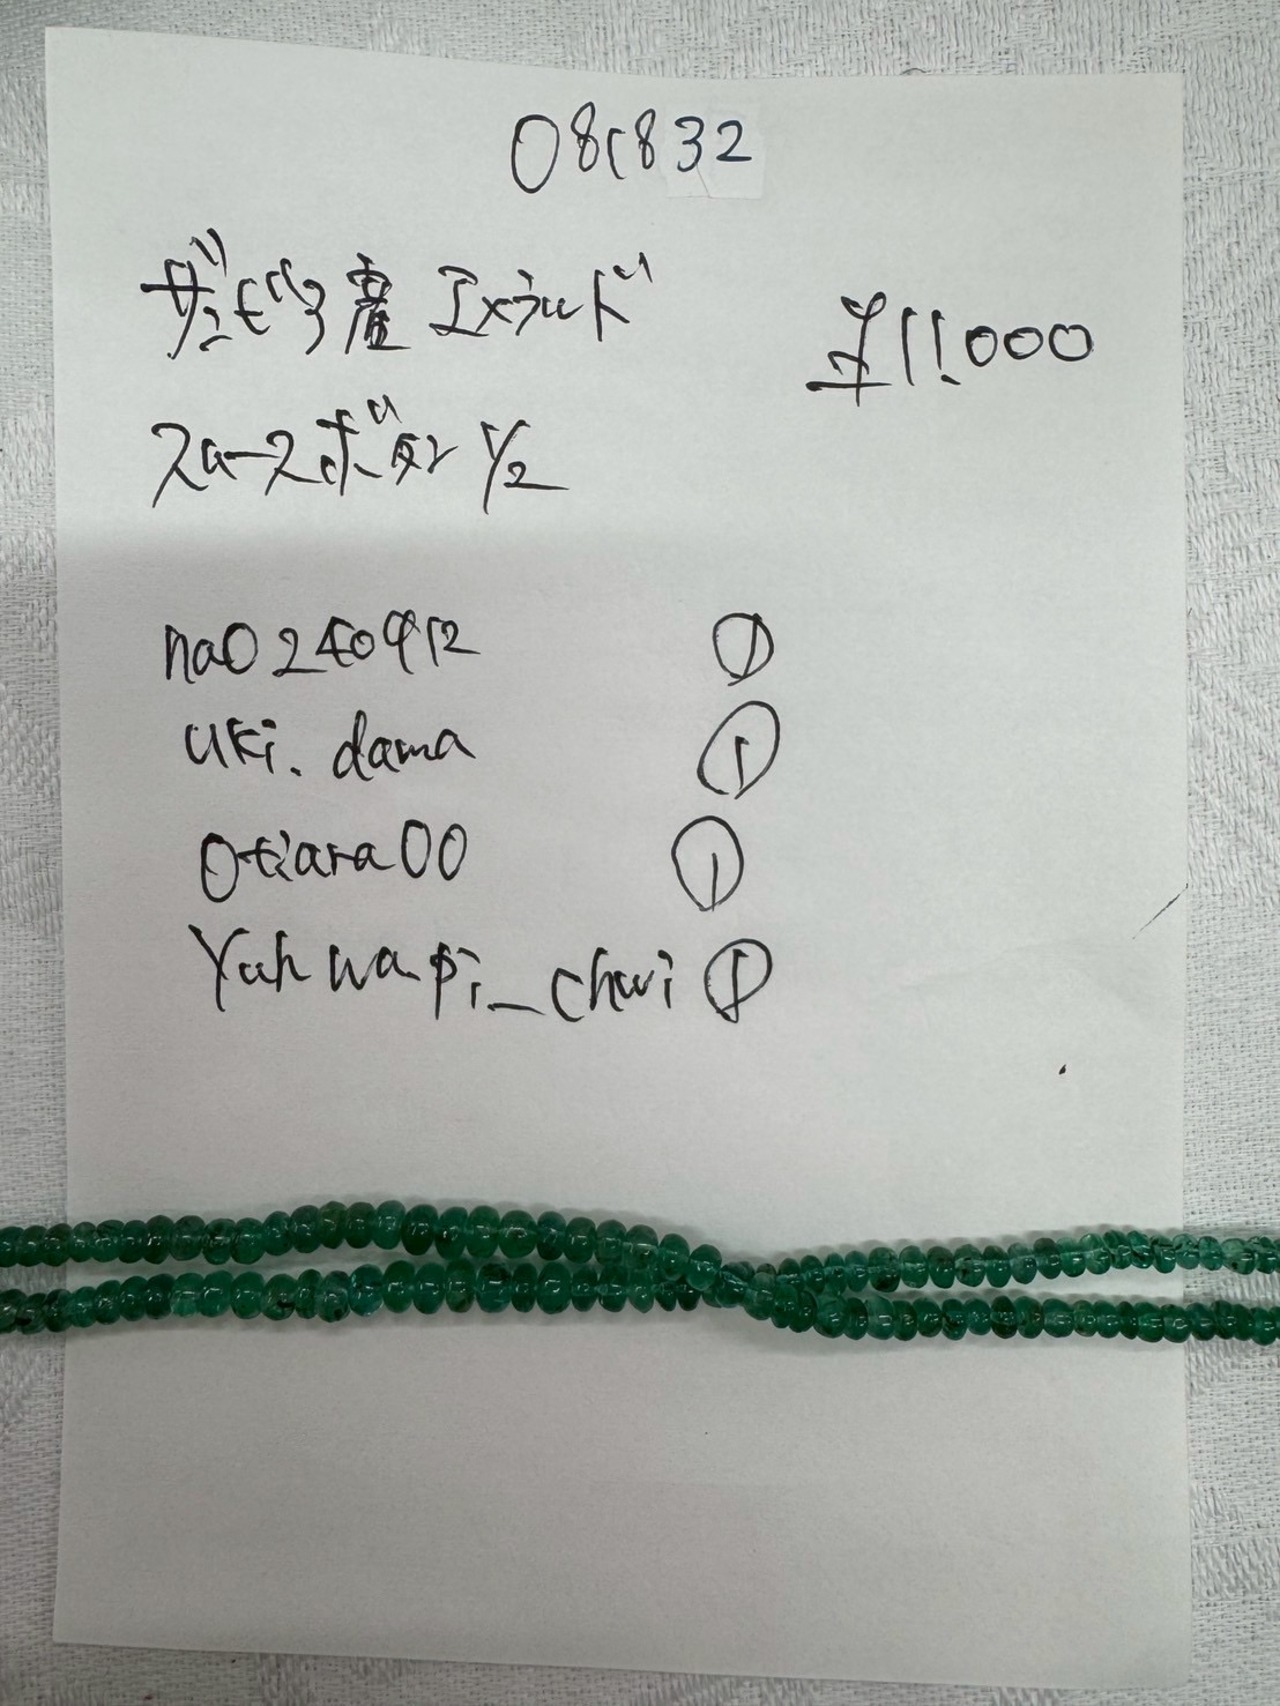 081832
ザンビア産 エメラルド
¥11.000
スムースボタン 1/2
nao240912 ①
uki.dama ①
otiara00 ①
Yuhwapi_chwi ①